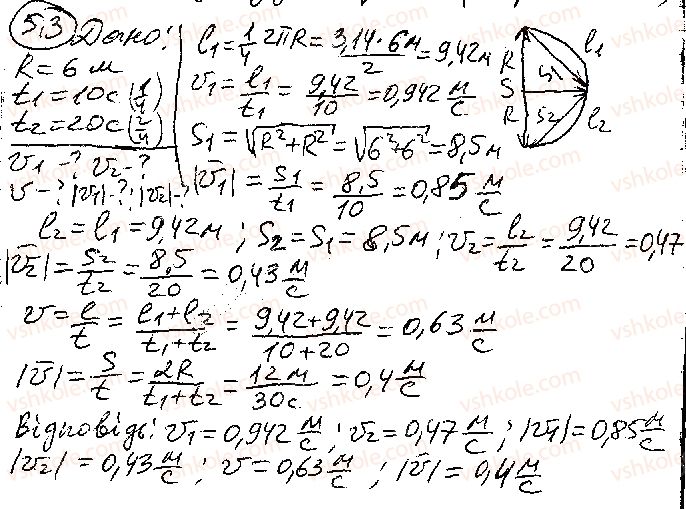 5.3 Дано:
R = 6 м
t1 = 10c (1/4)
t2 = 20c (2/4)
v1 - ? v2 - ?
v - ? |v̄1| - ? |v̄2| - ?
l1 = 1/4 2πR = 3,14 · 6м / 2 = 9,42м
v1 = l1/t1 = 9,42/10 = 0,942 м/с
S1 = √(R² + R²) = √(6² + 6²) = 8,5 м
|v̄1| = S1/t1 = 8,5/10 = 0,85 м/с
R S R S1 S2 l1 l2
l2 = l1 = 9,42 м ; S2 = S1 = 8,5 м ; v2 = l2/t2 = 9,42/20 = 0,47
|v̄2| = S2/t2 = 8,5/20 = 0,43 м/с
v = l/t = (l1 + l2)/(t1 + t2) = (9,42 + 9,42)/(10 + 20) = 0,63 м/с
|v̄| = S/t = 2R/(t1 + t2) = 12 м/30с = 0,4 м/с
Відповідь: v1 = 0,942 м/с ; v2 = 0,47 м/с ; |v̄1| = 0,85 м/с
|v̄2| = 0,43 м/с ; v = 0,63 м/с ; |v̄| = 0,4 м/с
vshkole.com